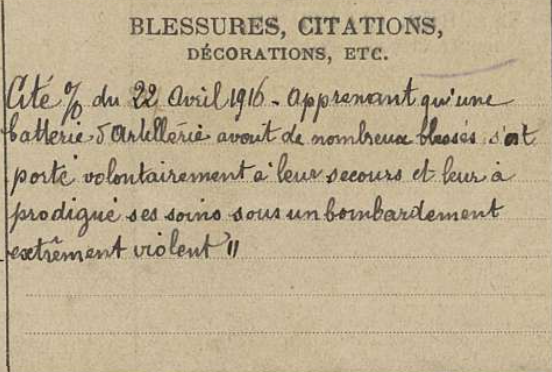 BLESSURES, CITATIONS,
DÉCORATIONS, ETC.
Cité % du 22 Avril 1916 - Apprenant qu'une
batterie d'Artillérie avait de nombreux blessés s'est
porté volontairement à leur secours et leur à
prodigué ses soins sous un bombardement
extrêment violent "